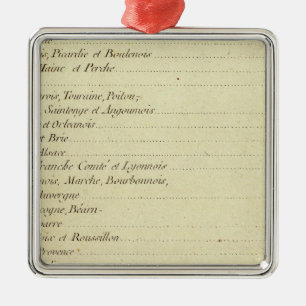 s, Picardie et Boulenois
Maine et Perche
rois, Touraine, Poitou,
Saintonge et Angoumois
et Orleanois
et Brie
Alsace
ranche Comté et Lyonnois
nois, Marche, Bourbonnois,
uvergne
cogne, Béarn
arre
oix et Roussillon
Provence